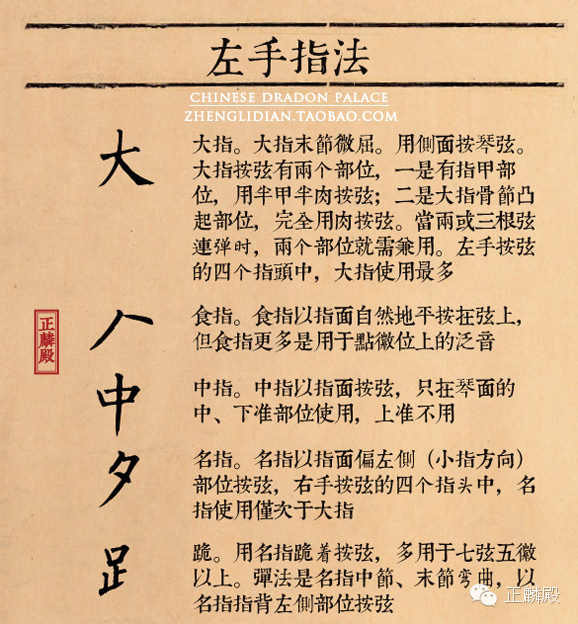 左手指法
CHINESE DRADON PALACE
ZHENGLIDIAN.TAOBAO.COM
大
大指。大指末節微屈。用側面按琴弦。
大指按弦有兩个部位，一是有指甲部
位，用半甲半肉按弦；二是大指骨節凸
起部位，完全用肉按弦。當兩或三根弦
連弹时，兩个部位就需兼用。左手按弦
的四个指頭中，大指使用最多
人
食指。食指以指面自然地平按在弦上，
但食指更多是用于點徽位上的泛音
正麟殿
中
中指。中指以指面按弦，只在琴面的
中、下准部位使用，上准不用
夕
名指。名指以指面偏左側（小指方向）
部位按弦，右手按弦的四个指头中，名
指使用僅次于大指
足
跪。用名指跪着按弦，多用于七弦五徽
以上。彈法是名指中節、末節弯曲，以
名指指背左側部位按弦
正麟殿